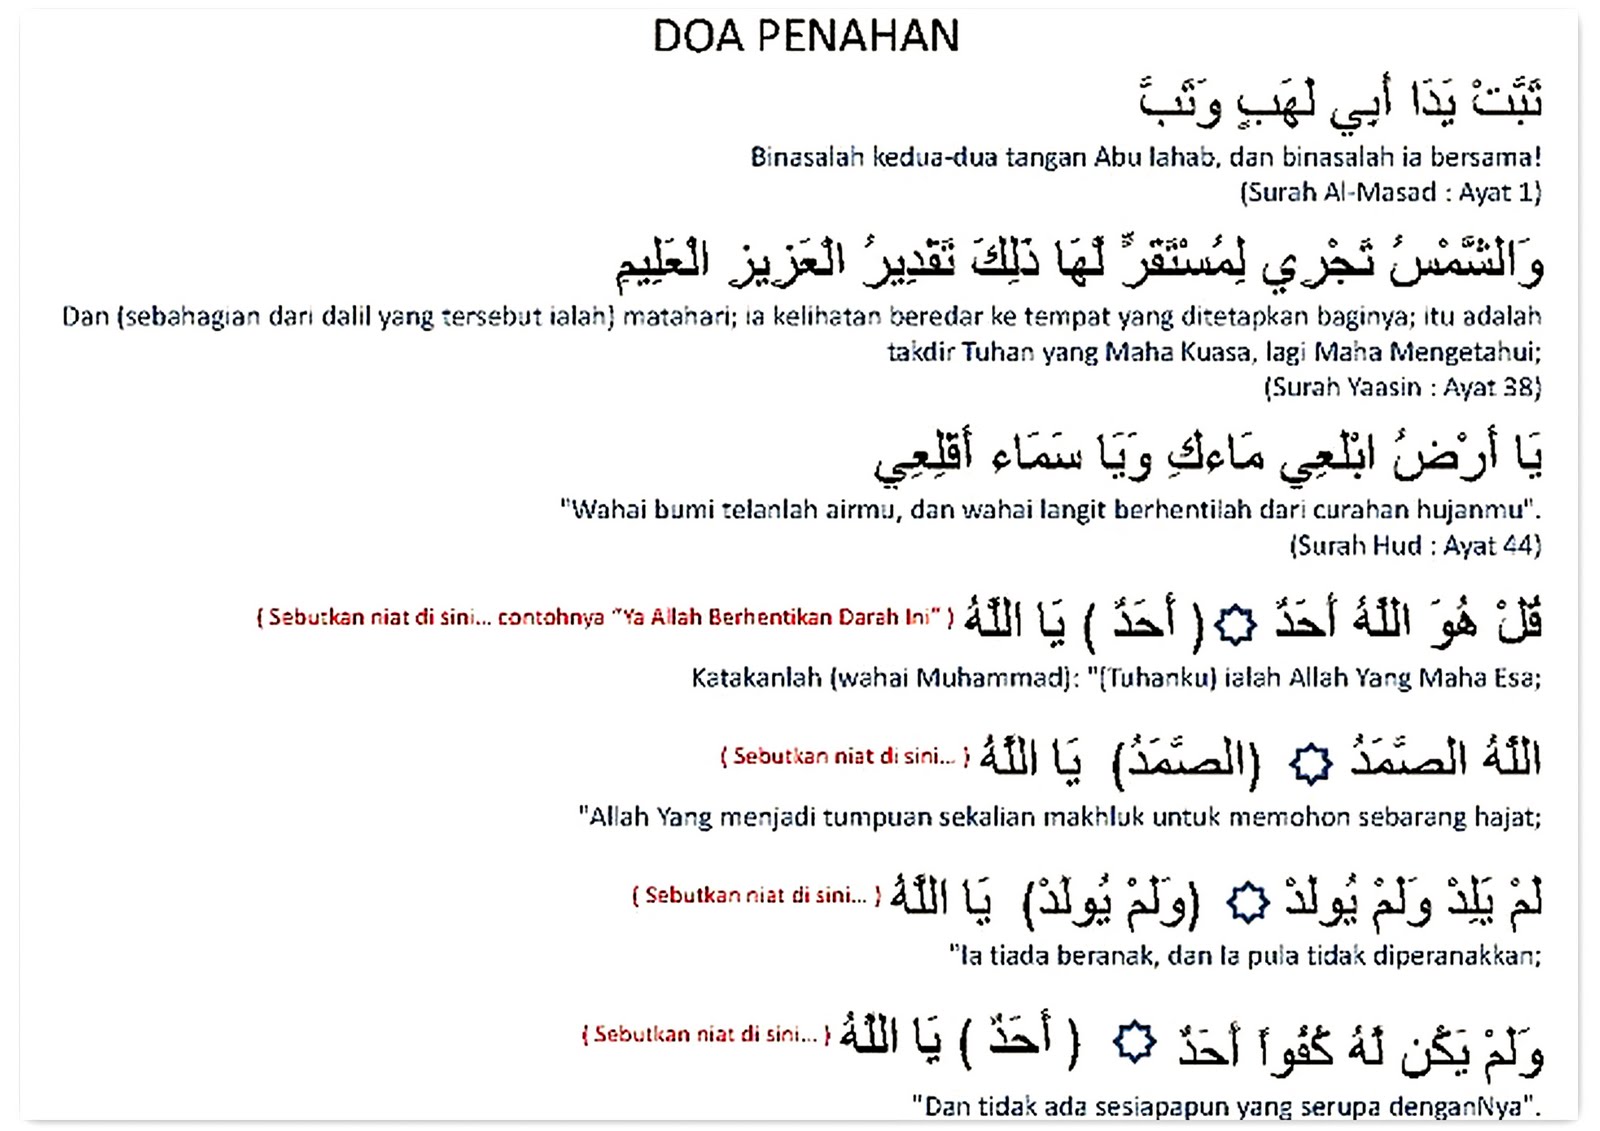 DOA PENAHAN
تَبَّتْ يَدَا أَبِي لَهَبٍ وَتَبَّ
Binasalah kedua-dua tangan Abu lahab, dan binasalah ia bersama!
(Surah Al-Masad : Ayat 1)
وَالشَّمْسُ تَجْرِي لِمُسْتَقَرٍّ لَّهَا ذَلِكَ تَقْدِيرُ الْعَزِيزِ الْعَلِيمِ
Dan (sebahagian dari dalil yang tersebut ialah) matahari; ia kelihatan beredar ke tempat yang ditetapkan baginya; itu adalah
takdir Tuhan yang Maha Kuasa, lagi Maha Mengetahui;
(Surah Yaasin : Ayat 38)
يَا أَرْضُ ابْلَعِي مَاءكِ وَيَا سَمَاء أَقْلِعِي
"Wahai bumi telanlah airmu, dan wahai langit berhentilah dari curahan hujanmu".
(Surah Hud : Ayat 44)
قُلْ هُوَ اللَّهُ أَحَدٌ ۞ ( أَحَدٌ ) يَا اللَّهُ ( Sebutkan niat di sini... contohnya "Ya Allah Berhentikan Darah Ini" )
Katakanlah (wahai Muhammad): "(Tuhanku) ialah Allah Yang Maha Esa;
اللَّهُ الصَّمَدُ ۞ (الصَّمَدُ) يَا اللَّهُ ( Sebutkan niat di sini... )
"Allah Yang menjadi tumpuan sekalian makhluk untuk memohon sebarang hajat;
لَمْ يَلِدْ وَلَمْ يُولَدْ ۞ (وَلَمْ يُولَدْ) يَا اللَّهُ ( Sebutkan niat di sini... )
"Ia tiada beranak, dan Ia pula tidak diperanakkan;
وَلَمْ يَكُن لَّهُ كُفُواً أَحَدٌ ۞ ( أَحَدٌ ) يَا اللَّهُ ( Sebutkan niat di sini... )
"Dan tidak ada sesiapapun yang serupa denganNya".